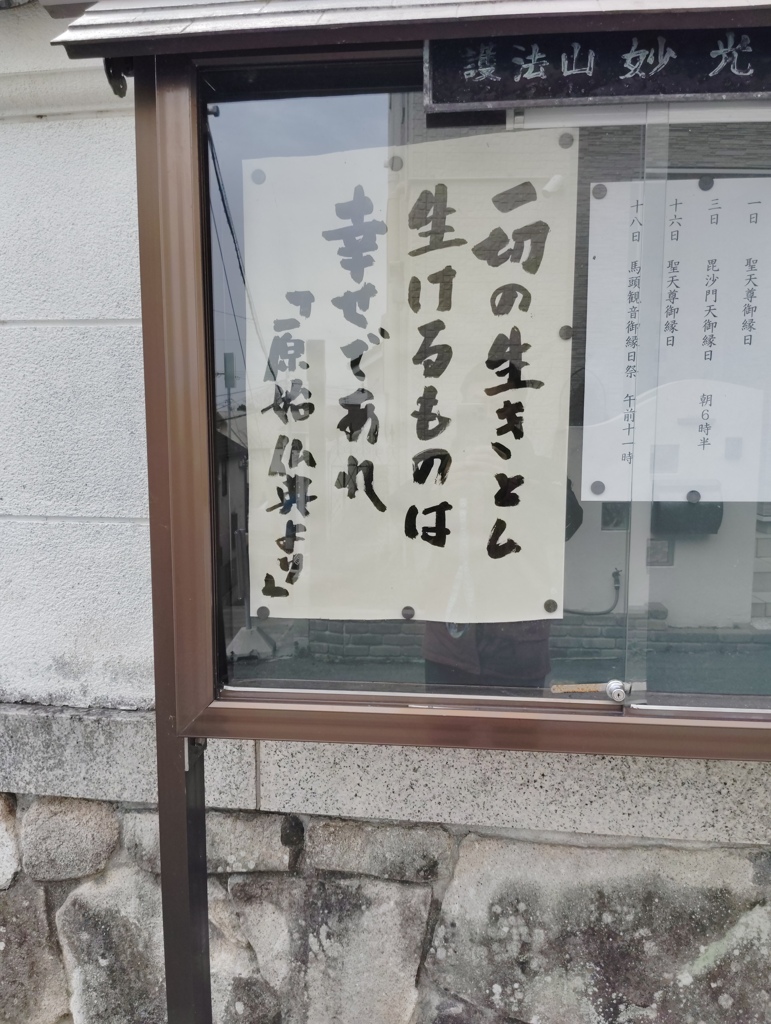 護法山 妙光
一日 聖天尊御縁日
三日 毘沙門天御縁日 朝6時半
十六日 聖天尊御縁日
十八日 馬頭観音御縁日祭 午前十一時
一切の生きとし
生けるものは
幸せであれ
「原始仏典より」